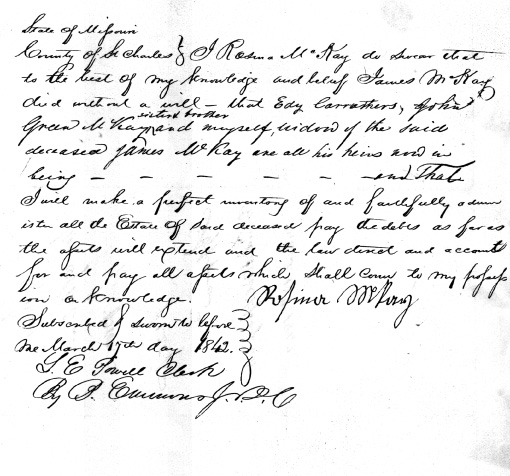 State of Missouri
County of St Charles } I Rosina McKay do swear that
to the best of my knowledge and belief James McKay
died without a will — that Edy Carrathers, John
sister & brother
Green McKay, and myself, widow of the said
deceased James McKay are all his heirs now in
being — — — — — — and That
I will make a perfect inventory of and faithfully admin
ister all the Estate of said deceased pay the debts as far as
the assets will extend and the law direct and account
for and pay all assets which shall come to my possess
ion or knowledge. Rosina McKay
Subscribed & sworn to before
me March 17th day 1842.
L. E. Powell Clerk
By P. Emmons Jr. D. C